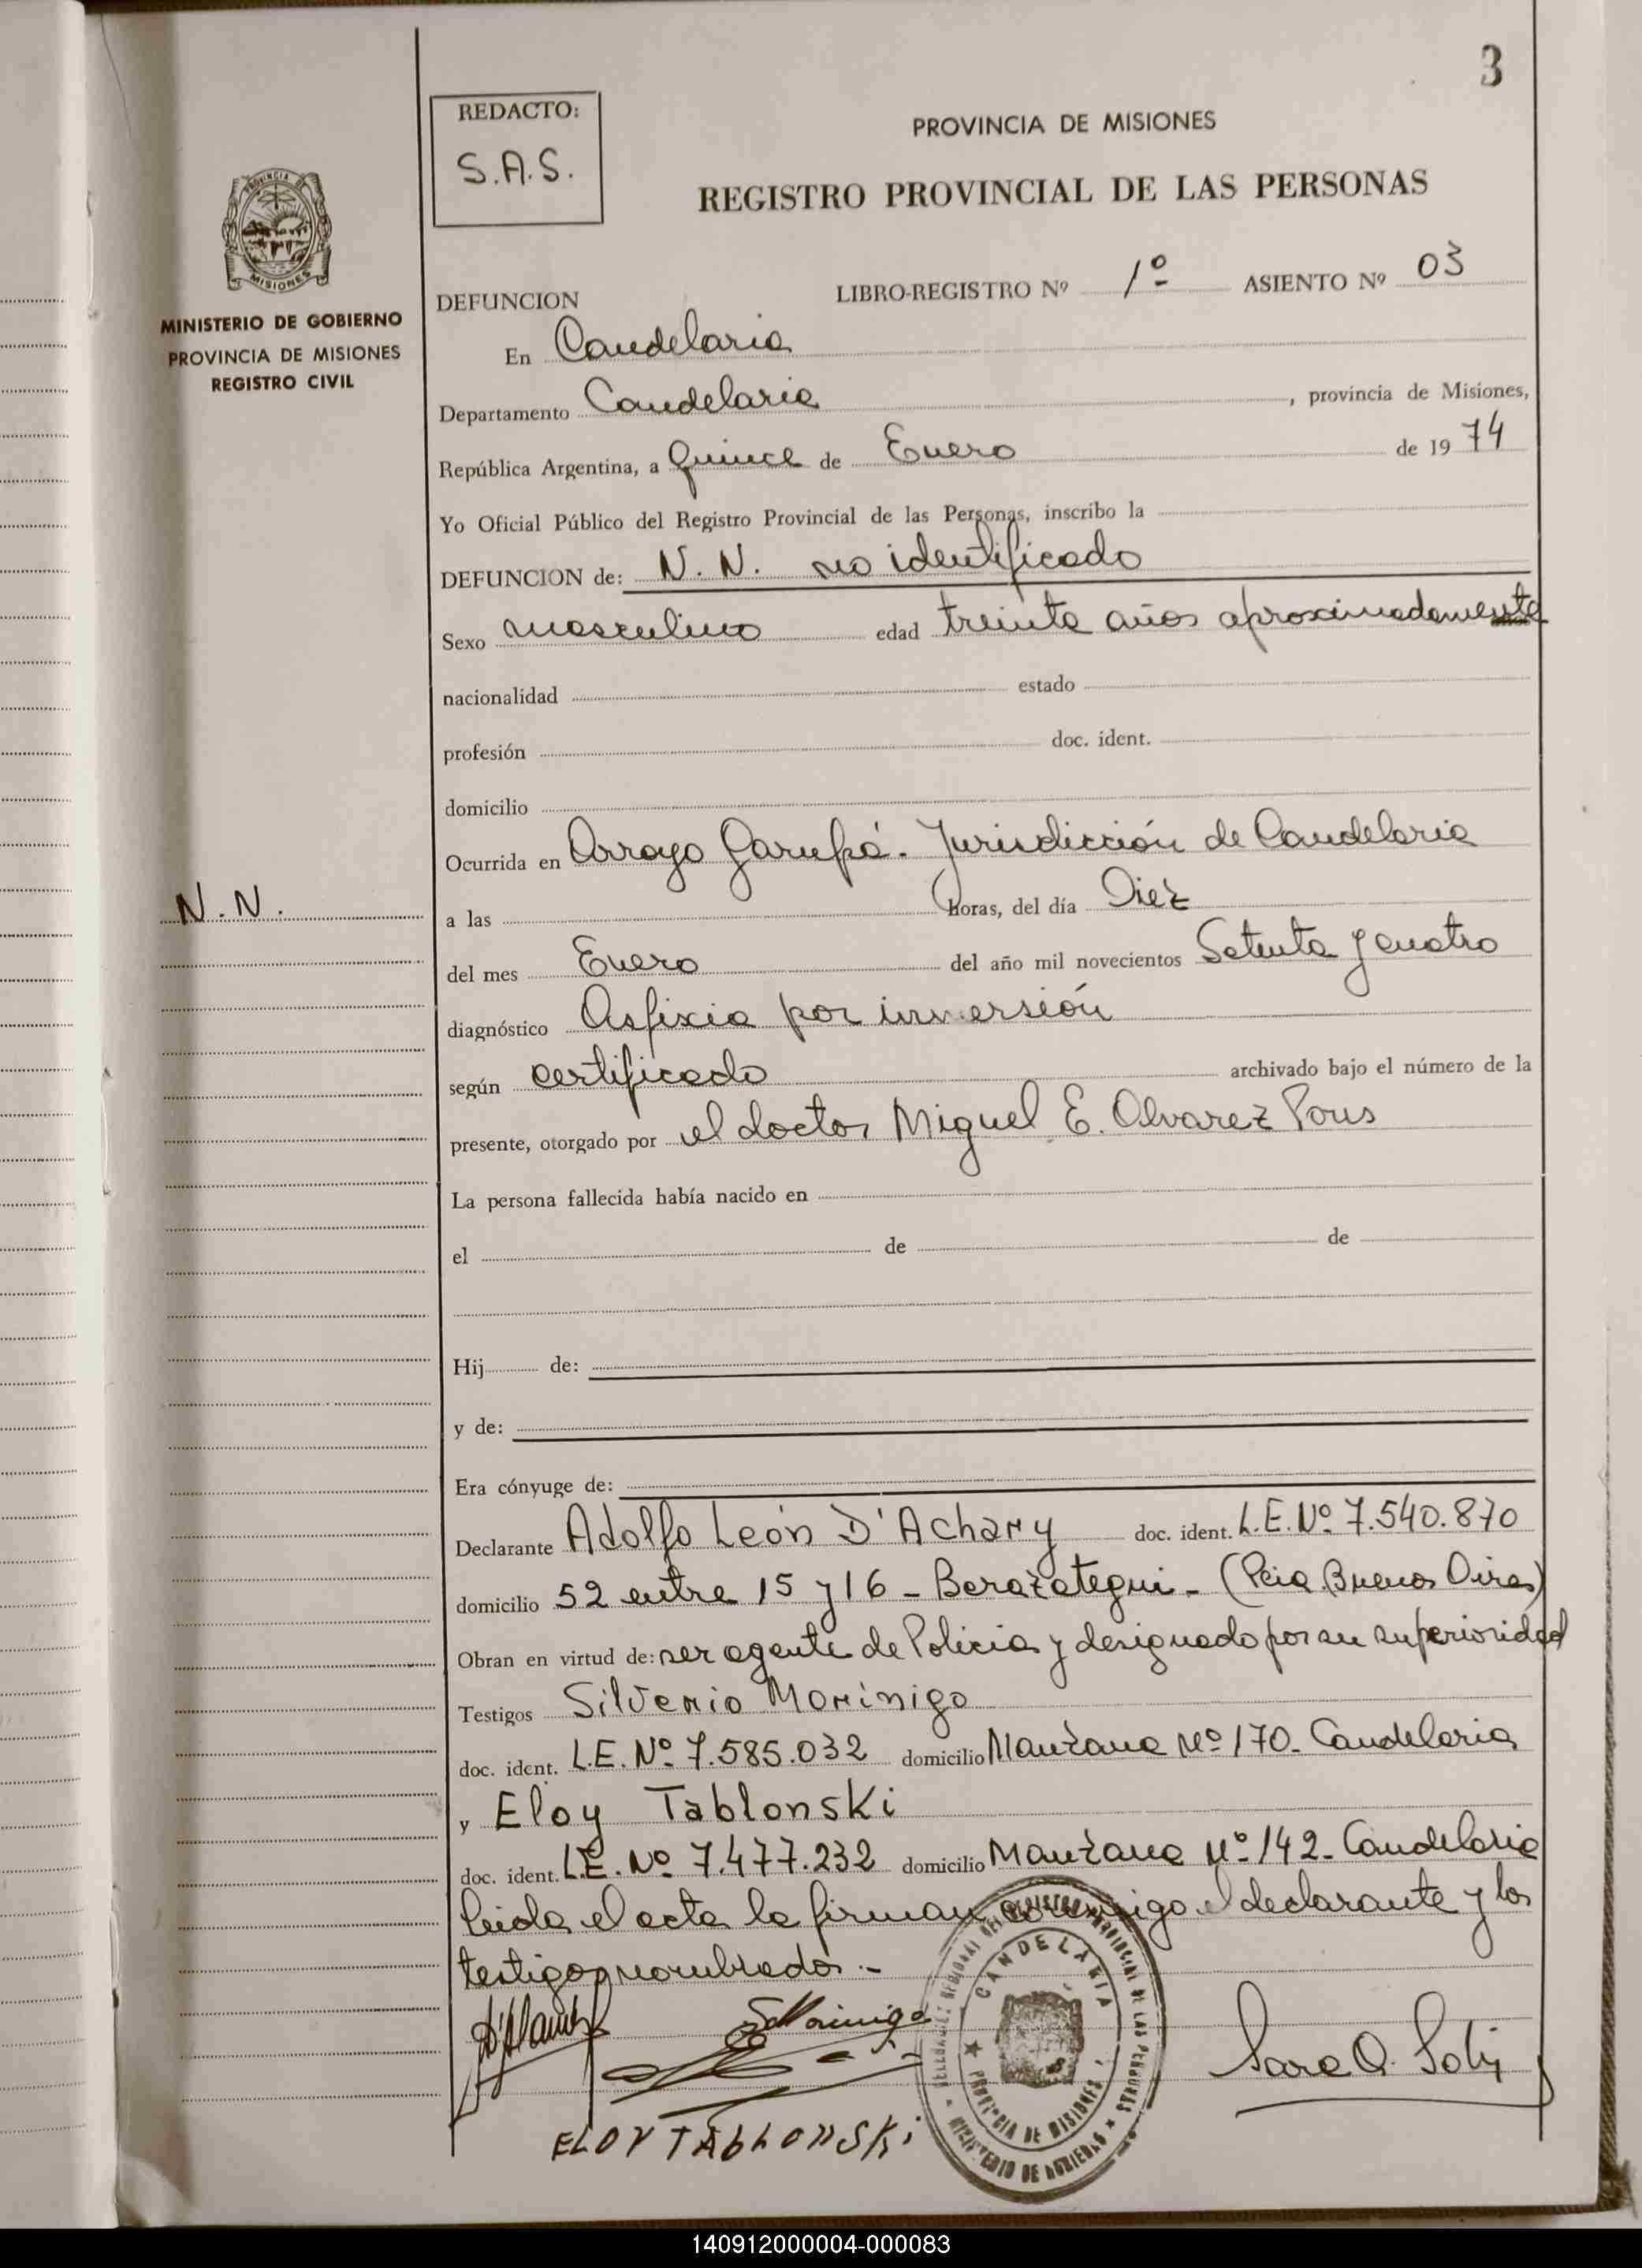 3
REDACTO:
S.A.S.
PROVINCIA DE MISIONES
REGISTRO PROVINCIAL DE LAS PERSONAS
PROVINCIA DE
MISIONES
MINISTERIO DE GOBIERNO
PROVINCIA DE MISIONES
REGISTRO CIVIL
DEFUNCION LIBRO-REGISTRO Nº 1º ASIENTO Nº 03
En Candelaria
Departamento Candelaria, provincia de Misiones,
República Argentina, a Quince de Enero de 1974
Yo Oficial Público del Registro Provincial de las Personas, inscribo la
DEFUNCION de: N. N. no identificado
Sexo masculino edad treinta años aproximadamente
nacionalidad estado
profesión doc. ident.
domicilio
Ocurrida en Arroyo Garupá. Jurisdicción de Candelaria
N. N.
a las horas, del día Diez
del mes Enero del año mil novecientos Setenta y cuatro
diagnóstico Asfixia por inmersión
según certificado archivado bajo el número de la
presente, otorgado por el doctor Miguel E. Alvarez Pons
La persona fallecida había nacido en
el de de
Hij de:
y de:
Era cónyuge de:
Declarante Adolfo León D'Achary doc. ident. L.E. Nº 7.540.870
domicilio 52 entre 15 y 16 - Berazategui - (Pcia Buenos Aires)
Obran en virtud de: ser agente de Policia y designado por su superioridad
Testigos Silverio Morinigo
doc. ident. L.E. Nº 7.585.032 domicilio Manzana Nº 170 - Candelaria
y Eloy Tablonski
doc. ident. L.E. Nº 7.477.232 domicilio Manzana Nº 142 - Candelaria
leida el acta la firman conmigo el declarante y los
testigos nombrados.-
CANDELARIA
PROVINCIA DE MISIONES
MINISTERIO DE GOBIERNO
SMorinigo
ELOY TABLONSKi
140912000004-000083